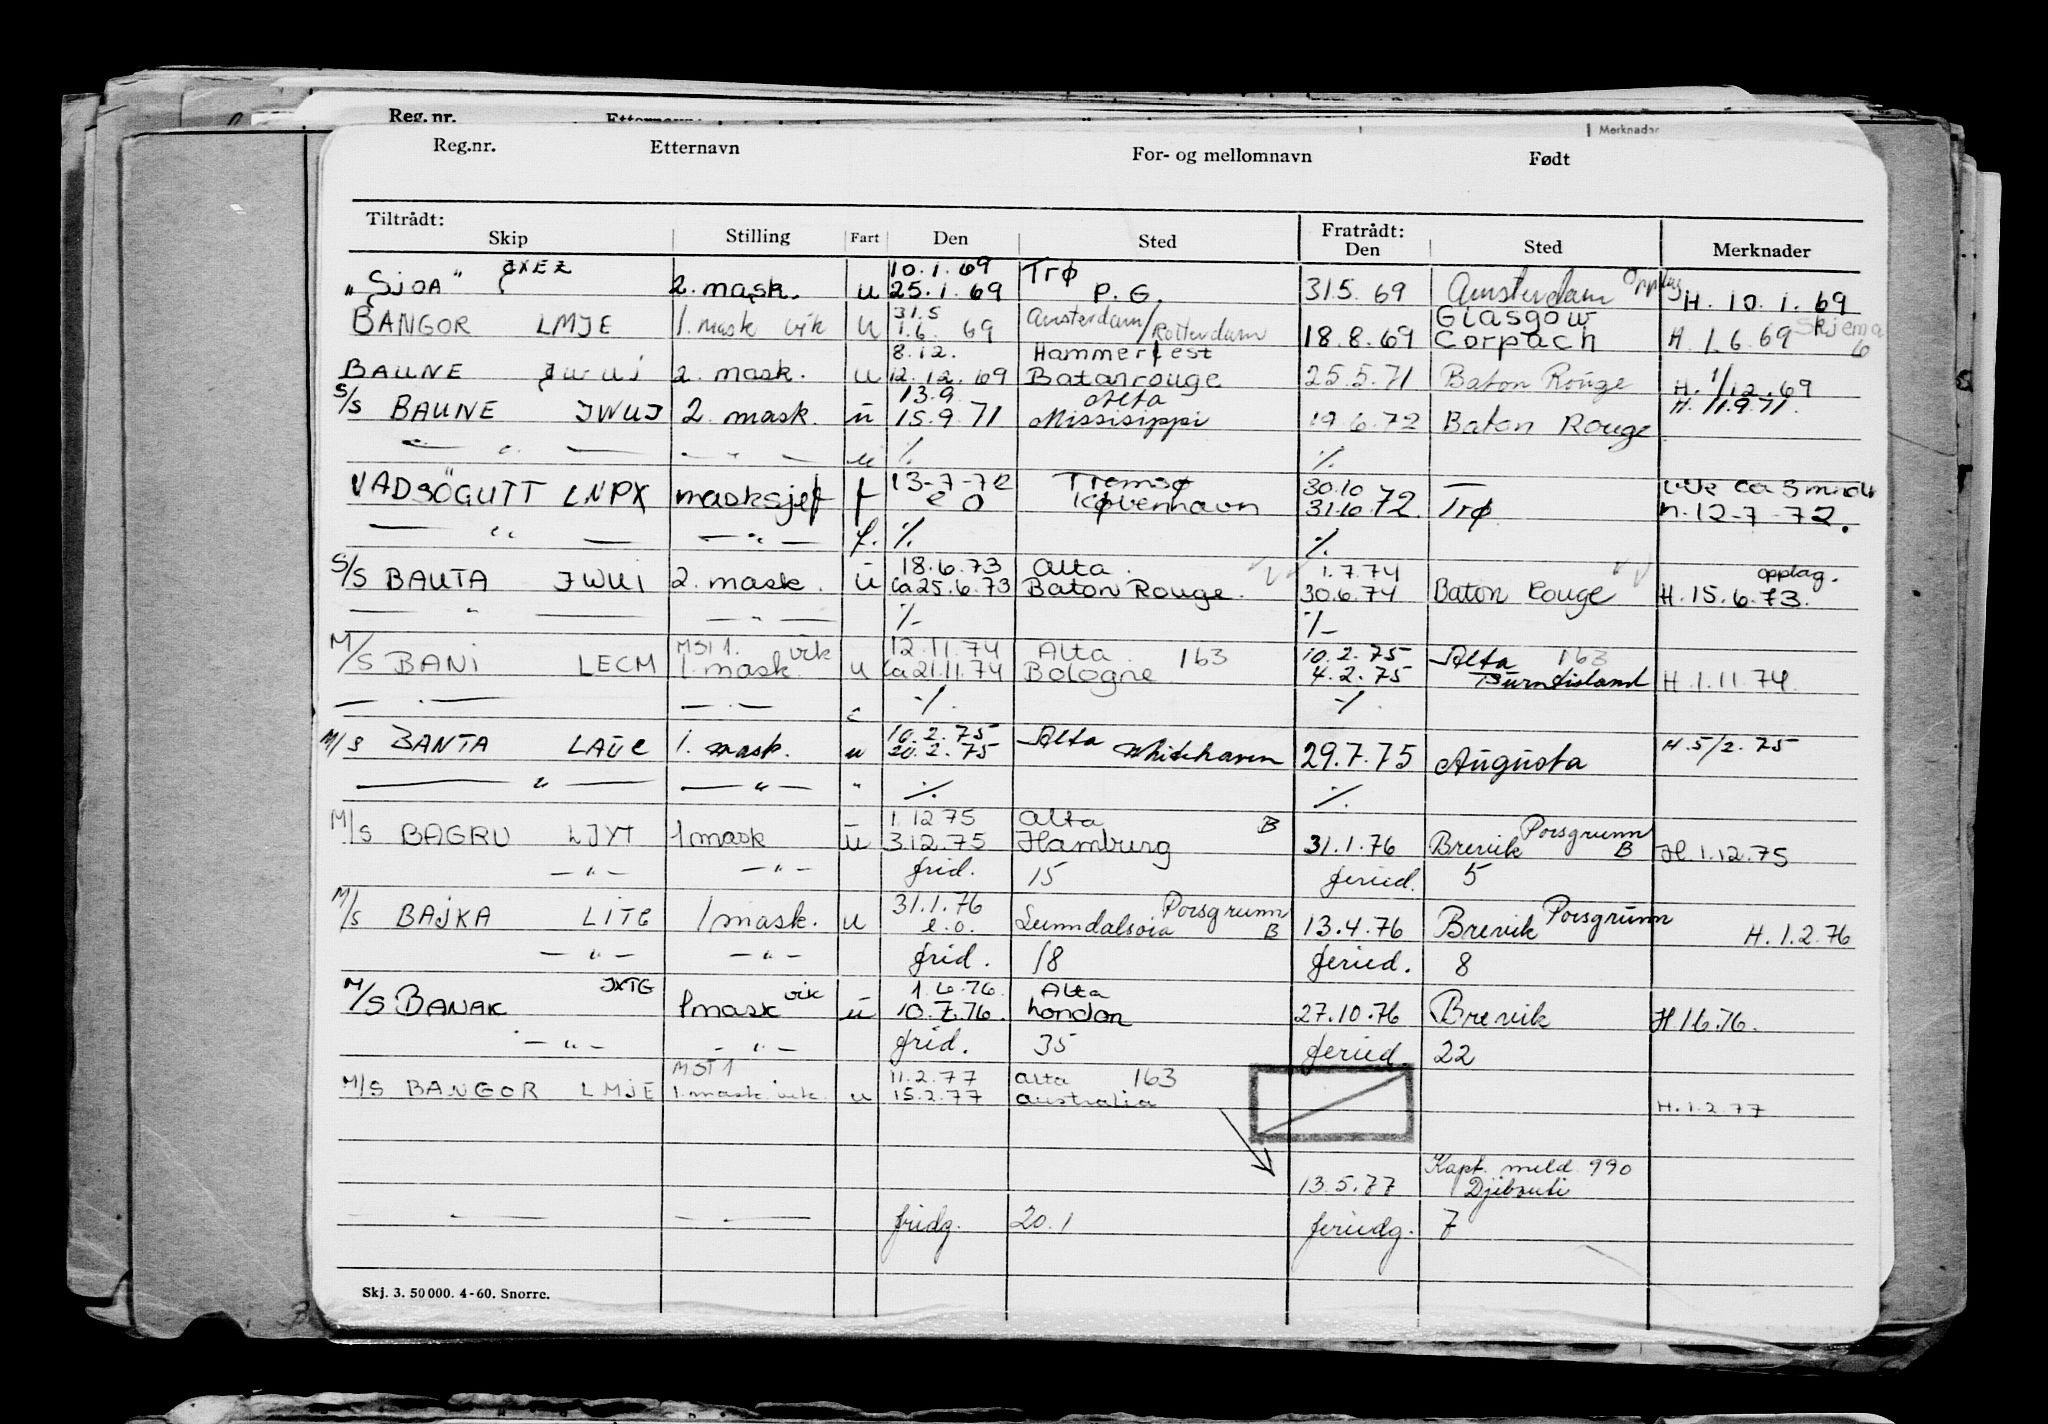 Reg. nr. Etternavn Merknader
Reg.nr. Etternavn For- og mellomnavn Født
Tiltrådt: Fratrådt:
Skip Stilling Fart Den Sted Den Sted Merknader
JXEZ 10.1.69 Trø
"SJOA" 2. mask. u 25.1.69 P.G. 31.5.69 Amsterdam Opplag H. 10.1.69
31.5 Amsterdam/ Glasgow Skjema
BANGOR LMJE 1. mask vik u 1.6.69 Rotterdam 18.8.69 Corpach H. 1.6.69 6
8.12. Hammerfest
BAUNE JWUJ 2. mask. u 12.12.69 Batonrouge 25.5.71 Baton Rouge H. 1/12.69
13.9. Alta
S/S BAUNE JWUJ 2. mask. u 15.9.71 Missisippi 19.6.72 Baton Rouge H. 11.9.71.
— " — — " — u ./. ./.
13-7-72 Tromsø 30.10 —
VADSÖGUTT LNPX masksjef f e o København 31.10.72 Trø h. 12-7-72.
— " — — " — f. ./. ./.
18.6.73 Alta. 1.7.74 opplag.
S/S BAUTA JWUI 2. mask. u Ca 25.6.73 Baton Rouge. 30.6.74 Baton Rouge H. 15.6.73.
— " — — " — ./. ./.
MST 1. vik 12.11.74 Alta 163 10.2.75 Alta 163
M/S BANI LECM 1. mask. u Ca 21.11.74 Bologne 4.2.75 Burntisland H. 1.11.74.
— . — — . — ./. ./.
10.2.75 Alta
M/S BANTA LAUC 1. mask. u 20.2.75 Whitehaven 29.7.75 Augusta H. 5/2.75
— " — — " — " ./. ./.
1.12.75 Alta B Porsgrunn
M/S BAGRU LJYT 1 mask u 3.12.75 Hamburg 31.1.76 Brevik B H. 1.12.75
— " — — " — frid. 15 feried. 5
31.1.76 Porsgrunn Porsgrunn
M/S BAJKA LITG 1 mask. u e.o. B 13.4.76 Brevik H. 1.2.76
— " — — " — frid. 18 feried. 8
JXTG vik 1.6.76. Alta
M/S BANAK 1 mask u 10.7.76. London 27.10.76 Brevik H 1.6.76.
— " — — " — frid. 35 feried. 22
MST 1 11.2.77 Alta 163
M/S BANGOR LMJE 1. mask. vik. u 15.2.77 Australia H. 1.2.77
Kapt. meld. 990
13.5.77 Djibouti
— — — — fridg. 20.1 feriedg. 7
Skj. 3. 50 000. 4-60. Snorre.